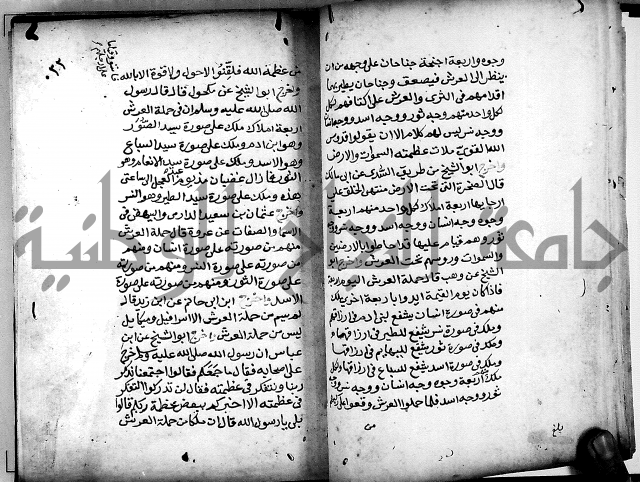 وجوه واربعة اجنحة جناحان على وجهه من ان
ينظر الى العرش فيصعق وجناحان يطير بهما
اقدامهم في الثرى والعرش على اكتافهم لكل
كل واحد منهم وجه ثور ووجه اسد ووجه انسان
ووجه نسر ليس لهم كلام الا ان يقولوا قدوس
الله القوي ملأت عظمته السموات والارض
واخرج ابو الشيخ من طريق السدي عن ابي مالك
قال الصخرة التي تحت الارض منتهى الخلق على
ارجايها اربعة املاك لكل واحد منهم اربعة
وجوه وجه انسان ووجه اسد ووجه نسر ووجه
ثور وهم قيام عليها قد احاطوا بالارضين
والسموات وروسهم تحت العرش واخرج ابو
الشيخ عن وهب قال حملة العرش اليوم اربعة
فاذا كان يوم القيمة ايدوا باربعة اخرى ملك
منهم في صورة انسان يشفع لبني ادم في ارزاقهم
وملك في صورة نسر يشفع للطير في ارزاقها
وملك في صورة ثور يشفع للبهايم في ارزاقها
وملك في صورة اسد يشفع للسباع في ارزاقها ولكل
ملك اربعة وجوه وجه انسان ووجه نسر ووجه
ثور ووجه اسد فلما حملوا العرش وقعوا على ركبهم
من
بلغ
٠٢٢
من عظمة الله فلقنوا لا حول ولا قوة الا بالله
واخرج ابو الشيخ عن مكحول قال قال رسول
الله صلى الله عليه وسلم ان في حملة العرش
اربعة املاك ملك على صورة سيد الصور
وهو ابن ادم وملك على صورة سيد السباع
وهو الاسد وملك على صورة سيد الانعام وهو
الثور فما زال غضبان مذ يوم العجل الى ساعتي
هذه وملك على صورة سيد الطير وهو النسر
واخرج عثمان بن سعيد الدارمي والبيهقي في
الاسماء والصفات عن عروة قال حملة العرش
منهم من صورته على صورة انسان ومنهم
من صورته على صورة النسر ومنهم من صورته
على صورة الثور ومنهم من صورته على صورة
الاسد واخرج ابن ابي حاتم عن ابن زيد قال
لم يسم من حملة العرش الا اسرافيل وميكايل
ليس من حملة العرش واخرج ابو الشيخ عن ابن
عباس ان رسول الله صلى الله عليه وسلم خرج
على اصحابه فقال ما جمعكم فقالوا اجتمعنا نذكر
ربنا ونتفكر في عظمته فقال لن تدركوا التفكر
في عظمته الا اخبركم ببعض عظمة ربكم قالوا
بلى يا رسول الله قال ان ملكا من حملة العرش
جامعة النجاح الوطنية